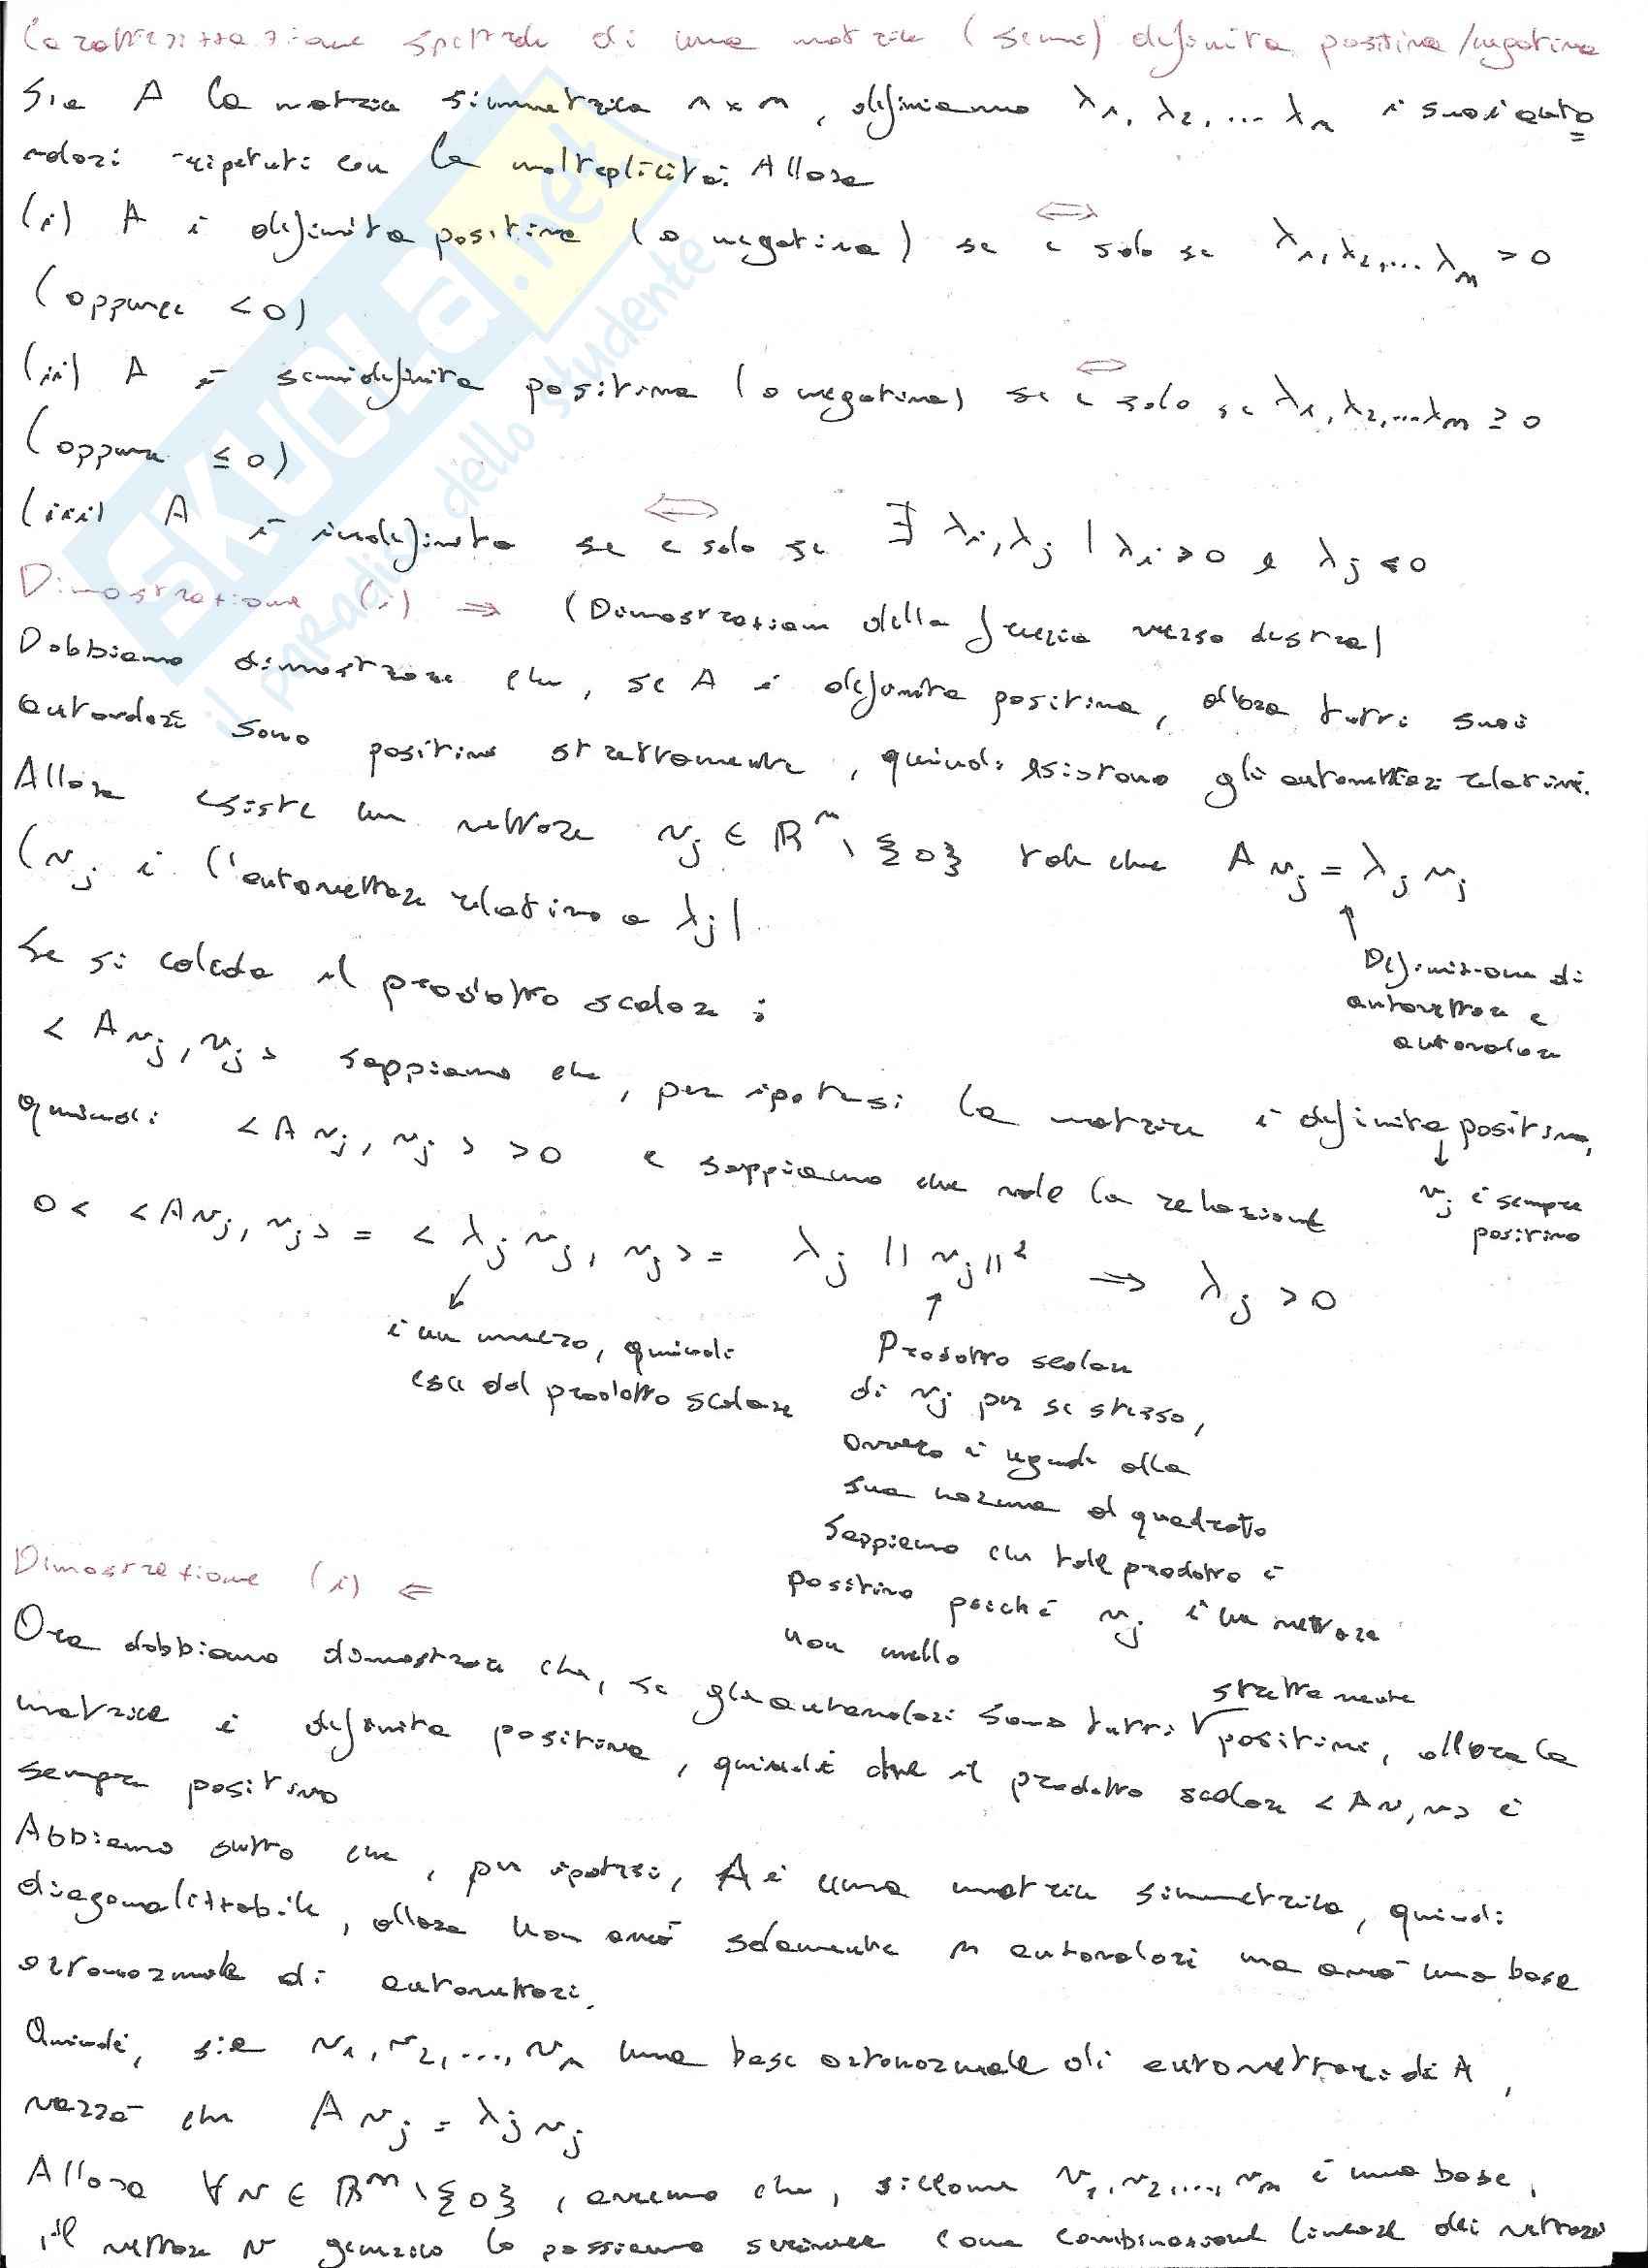 Caratterizzazione spettrale di una matrice (semi) definita positiva/negativa
Sia A la matrice simmetrica n x n, definiamo λ1, λ2, ... λn i suoi auto
valori ripetuti con la molteplicità. Allora
(i) A è definita positiva (o negativa) se e solo se λ1, λ2, ... λn > 0
⟺
(oppure < 0)
(ii) A è semidefinita positiva (o negativa) se e solo se λ1, λ2, ... λn ≥ 0
⟺
(oppure ≤ 0)
(iii) A è indefinita se e solo se ∃ λi, λj | λi > 0 e λj < 0
⟺
Dimostrazione (i) ⇒ (Dimostrazione della freccia verso destra)
Dobbiamo dimostrare che, se A è definita positiva, allora tutti suoi
autovalori sono positivi strettamente, quindi esistono gli autovettori relativi.
Allora esiste un vettore vj ∈ ℝⁿ \ {0} tale che A vj = λj vj
(vj è l'autovettore relativo a λj).
↑
Definizione di
autovettore e
autovalore
Se si calcola il prodotto scalare:
< A vj, vj > sappiamo che, per ipotesi la matrice è definita positiva,
↓
vj è sempre
positivo
quindi < A vj, vj > > 0 e sappiamo che vale la relazione
0 < < A vj, vj > = < λj vj, vj > = λj || vj ||² ⇒ λj > 0
↙
è un numero, quindi
esce dal prodotto scalare
↑
Prodotto scalare
di vj per se stesso,
ovvero è uguale alla
sua norma al quadrato
Sappiamo che tale prodotto è
positivo poiché vj è un vettore
non nullo
Dimostrazione (i) ⇐
Ora dobbiamo dimostrare che, se gli autovalori sono tutti strettamente positivi, allora la
matrice è definita positiva, quindi che il prodotto scalare < A v, v > è
sempre positivo
Abbiamo detto che, per ipotesi, A è una matrice simmetrica, quindi
diagonalizzabile, allora non avrò solamente n autovalori ma avrò una base
ortonormale di autovettori.
Quindi, sia v1, v2, ..., vn una base ortonormale di autovettori di A,
varrà che A vj = λj vj
Allora ∀ v ∈ ℝⁿ \ {0}, avremo che, siccome v1, v2, ..., vn è una base,
il vettore v generico lo possiamo scrivere come combinazione lineare dei vettori
SKUOLA.net
il paradiso dello studente